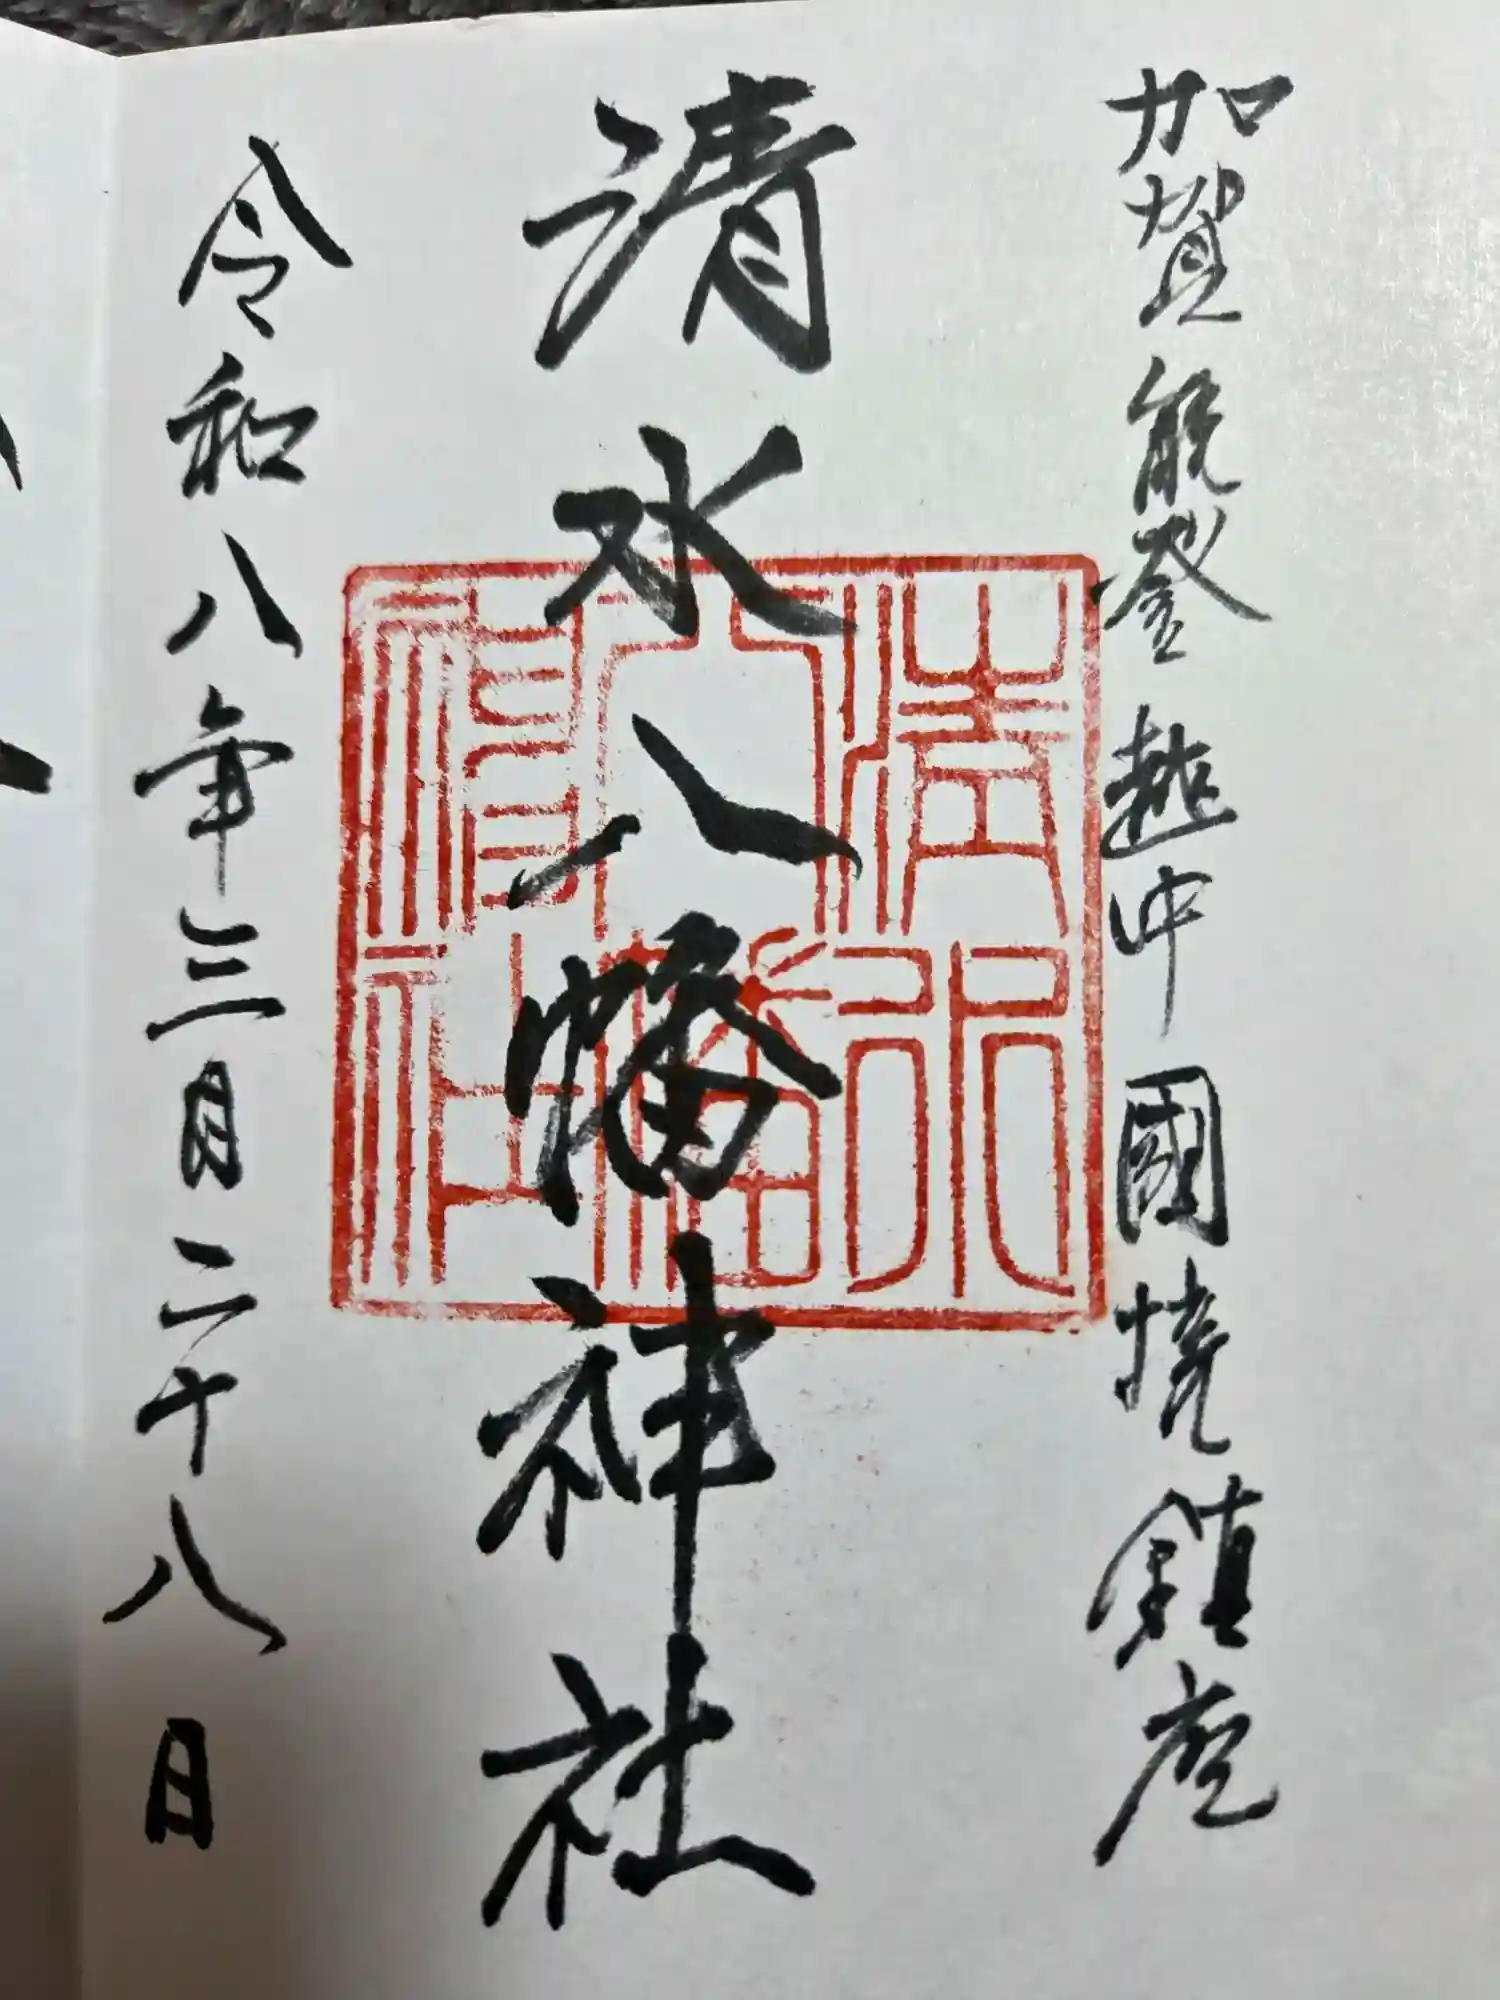 加賀能登越中國境鎮座
清水八幡神社
清水八幡神社
令和八年三月二十八日